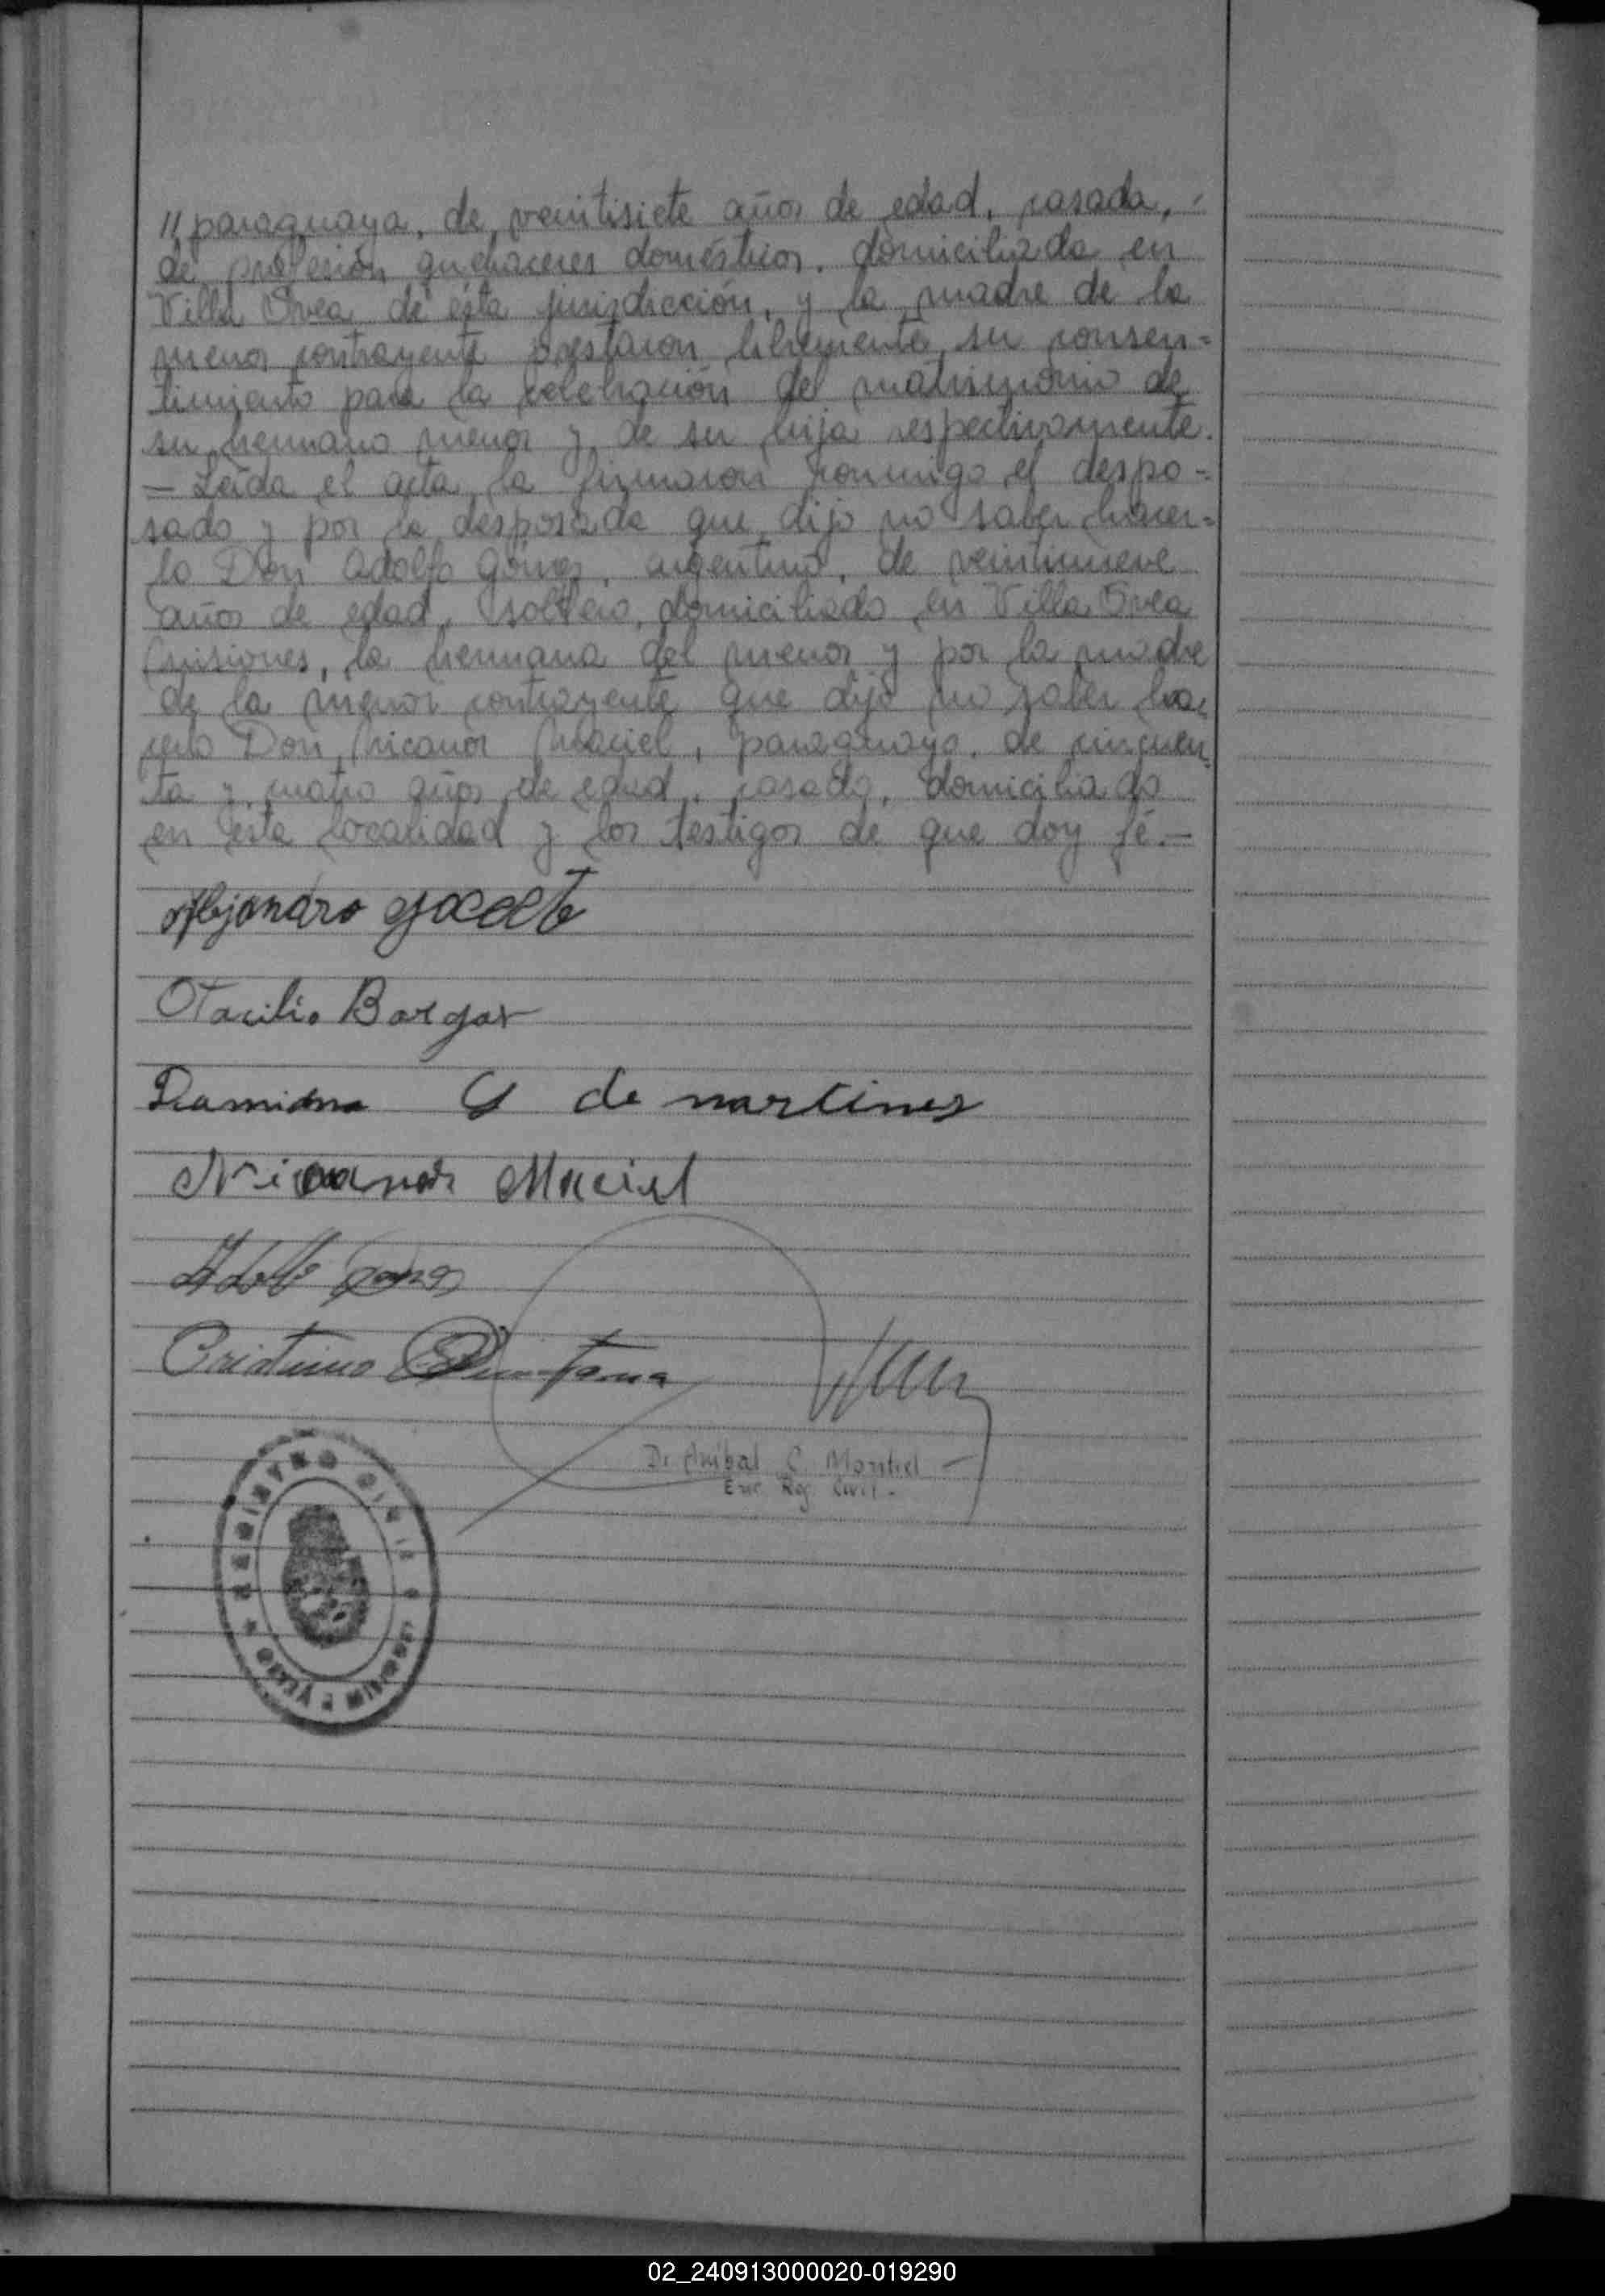 // paraguaya, de venitisiete años de edad, casada,
de profesión quehaceres domésticos, domiciliada en
Villa Svea de ésta jurisdicción, y la madre de la
menor contrayente prestaron libremente su consen=
timiento para la celebración del matrimonio de
su hermano menor y de su hija respectivamente.
— Leída el acta la firmaron conmigo el despo=
sado y por la desposada que dijo no saber hacer=
lo Don Adolfo Gómez, argentino, de veintinueve
años de edad, soltero, domiciliado en Villa Svea
Misiones, la hermana del menor y por la madre
de la menor contrayente que dijo no saber ha
cerlo Don Nicanor Maciel, paraguayo, de cincuen
ta y cuatro años de edad, casado, domiciliado
en esta localidad y los testigos de que doy fé.—
Alejandro
Otacilio Bargas
Damiana G de martines
Nicanor Maciel
Adolfo Gomez
Cristino Quintana
Dr Anibal C. Montiel
Enc. Reg. Civil.
REGISTRO CIVIL
MISIONES
02_240913000020-019290